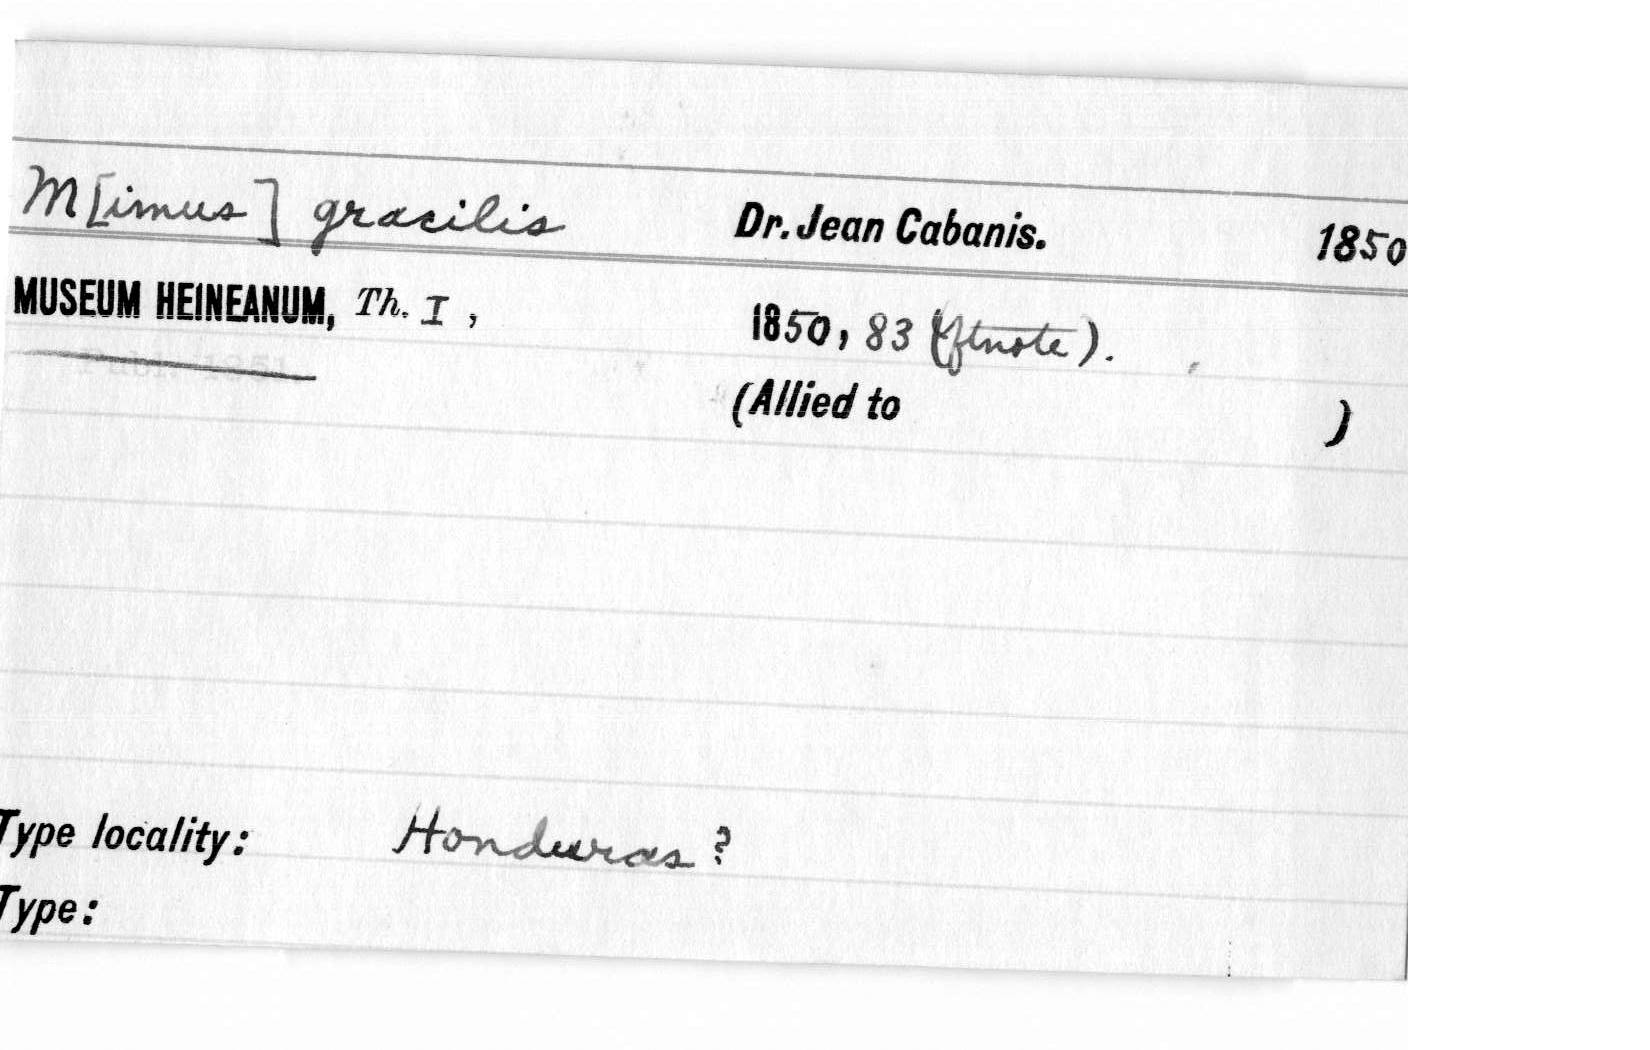 M[imus] gracilis Dr. Jean Cabanis. 1850
MUSEUM HEINEANUM, Th. I, 1850, 83 (ftnote).
Publ. 1851
(Allied to )
Type locality: Honduras?
Type: